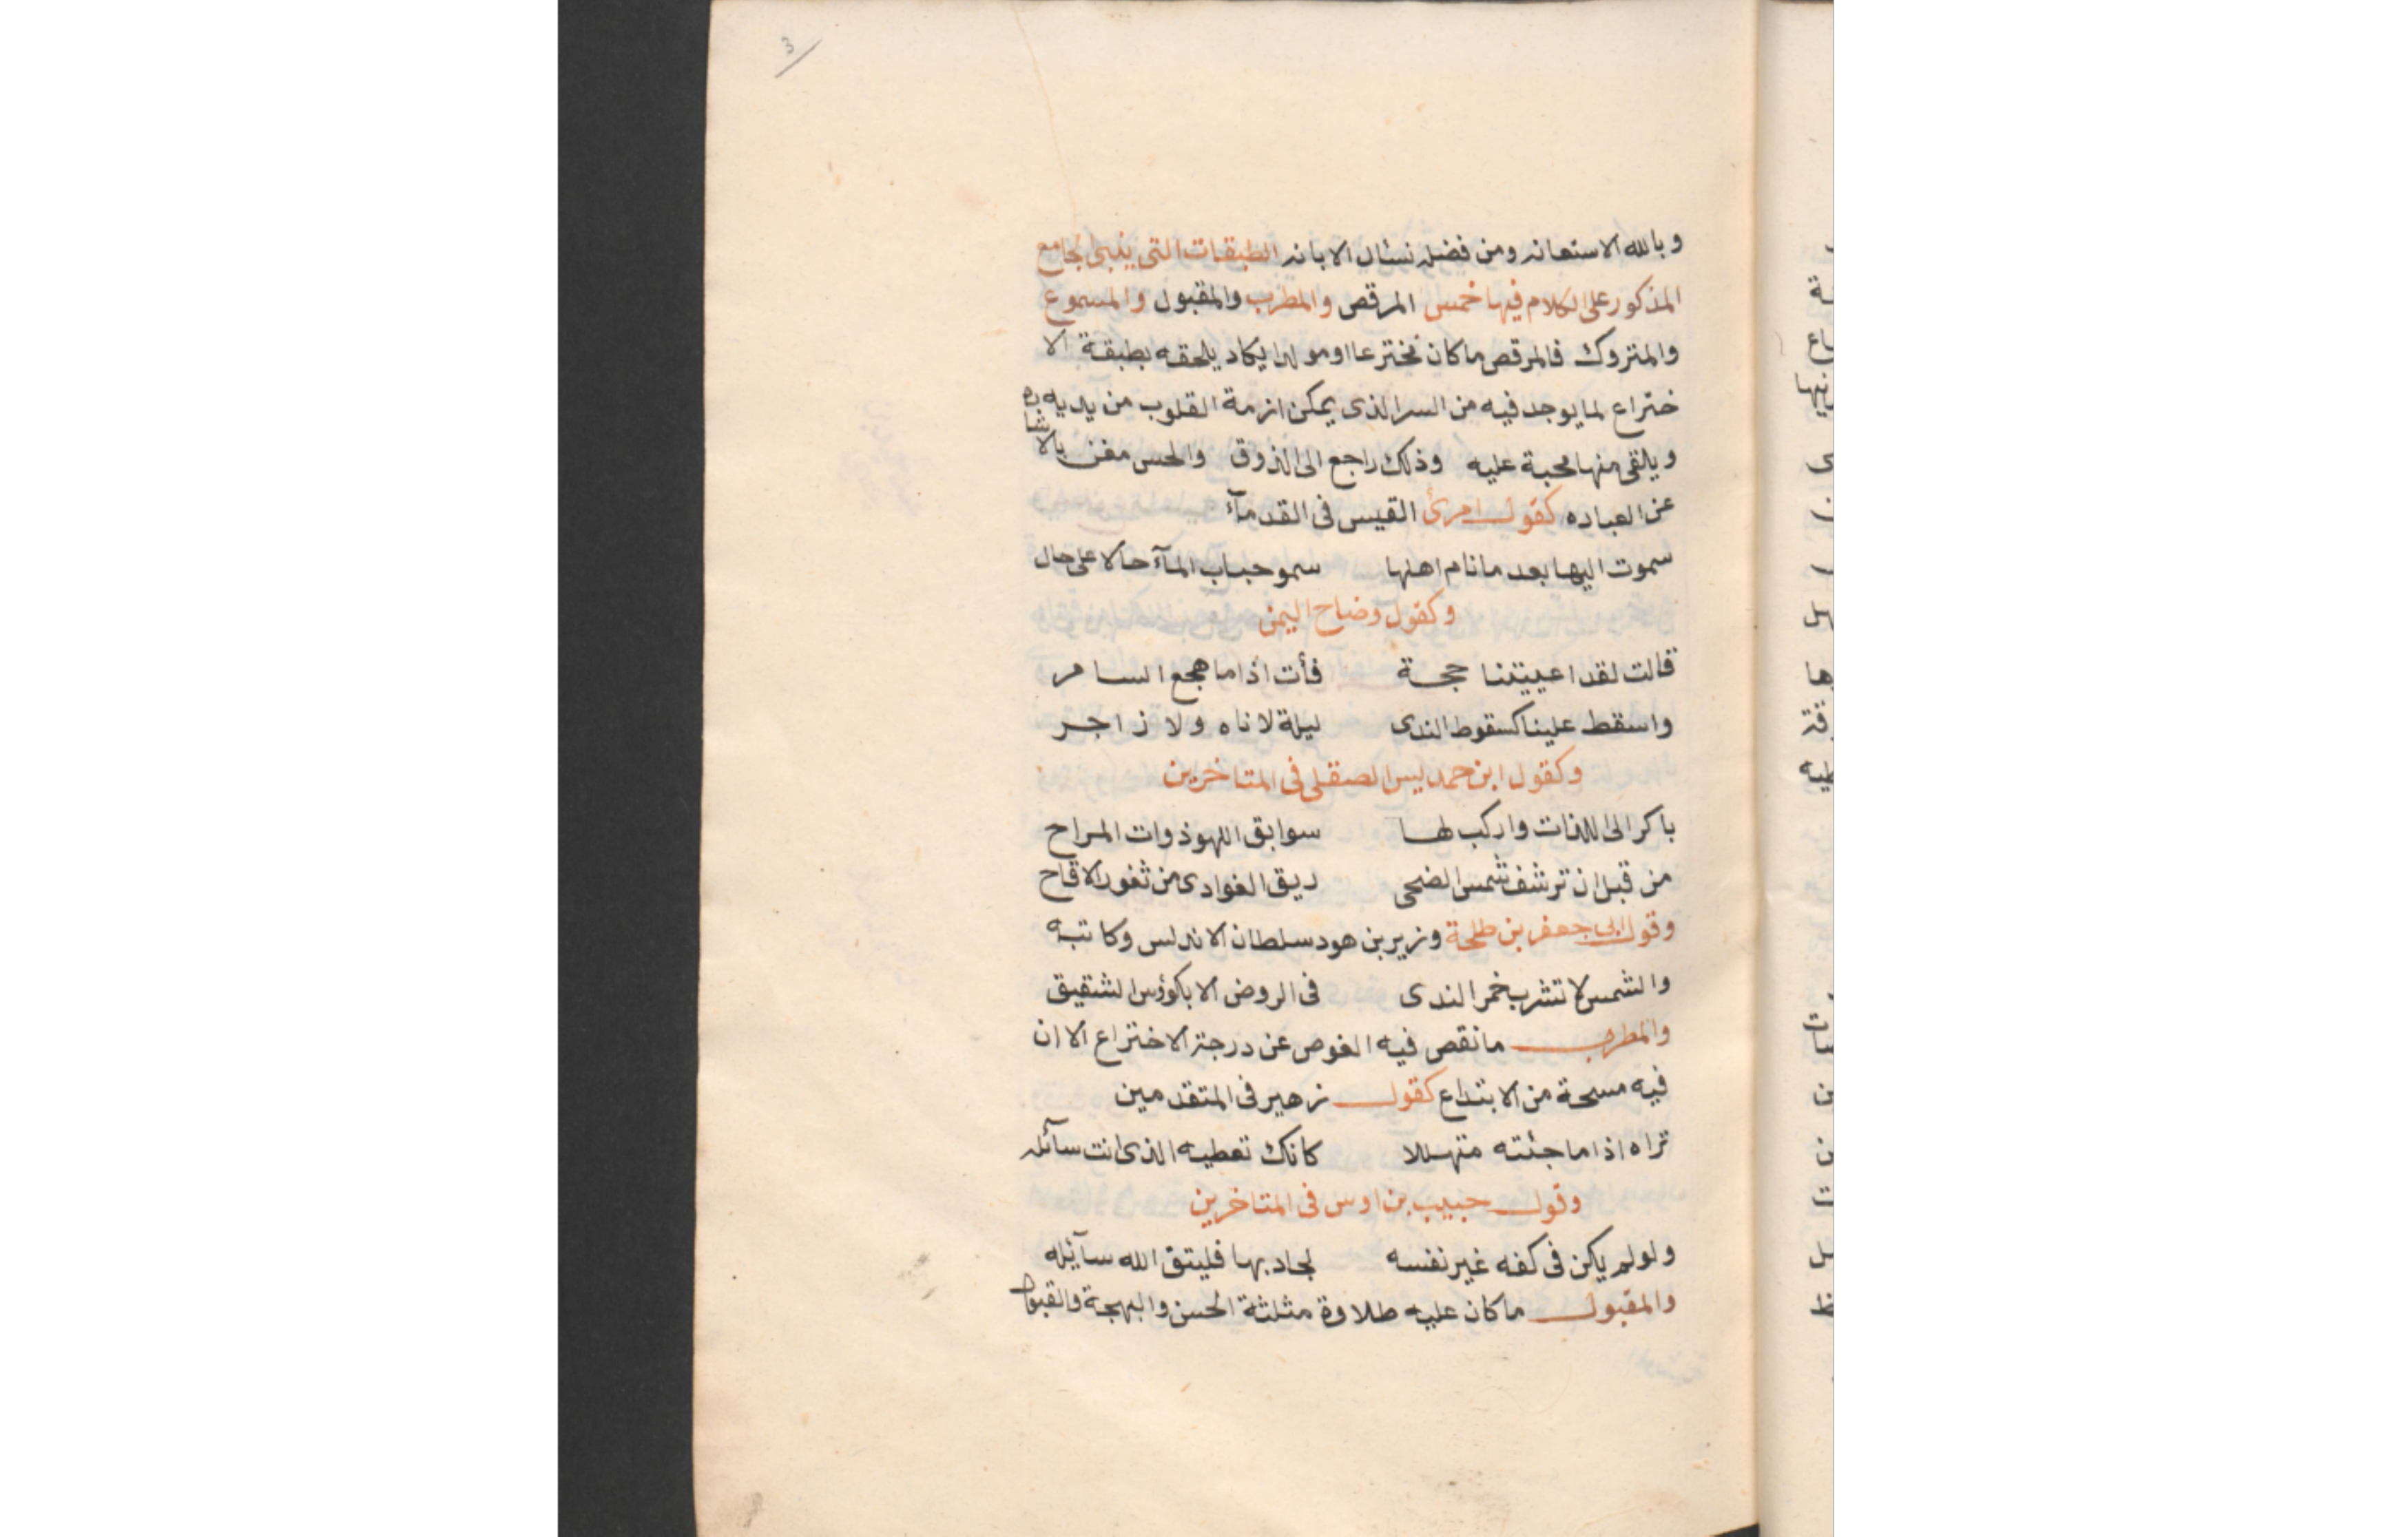 3
وبالله الاستعانه ومن فضله نسئال الابانه الطبقات التى ينبى لجامع
المذكور على الكلام فيها خمس المرقص والمطرب والمقبول والمسموع
والمتروك فالمرقص ماكان مخترعا اومولدا يكاد يلحقه بطبقة الا
ختراع لما يوجد فيه من السر الذى يمكن ازمة القلوب من يديه
ويلقى منها محبة عليه وذلك راجع الى الذوق والحس مغن بالاشاره
عن العباده كقول امرئ القيس فى القدمآء
سموت اليها بعد ما نام اهلها سمو حباب المآء حالا على حال
وكقول وضاح اليمن
قالت لقد اعييتنا حجة فأت اذا ما هجع السامر
واسقط علينا كسقوط الندى ليلة لا ناه ولا زاجر
وكقول ابن حمديس الصقلى فى المتاخرين
باكر الى اللذات واركب لها سوابق اللهو ذوات المراح
من قبل ان ترشف شمس الضحى ريق الغوادى من ثغور الاقاح
وقول ابى جعفر بن طلحة وزير بن هود سلطان الاندلس وكاتبه
والشمس لا تشرب خمر الندى فى الروض الا بكؤس الشقيق
والمطرب ما نقص فيه الغوص عن درجة الاختراع الا ان
فيه مسحة من الابتداع كقول زهير فى المتقدمين
تراه اذا ما جئته متهللا كانك تعطيه الذى انت سآئله
وقول حبيب بن اوس فى المتاخرين
ولو لم يكن فى كفه غير نفسه لجاد بها فليتق الله سآئله
والمقبول ما كان عليه طلاوة مثلثة الحسن والبهجة والقبول